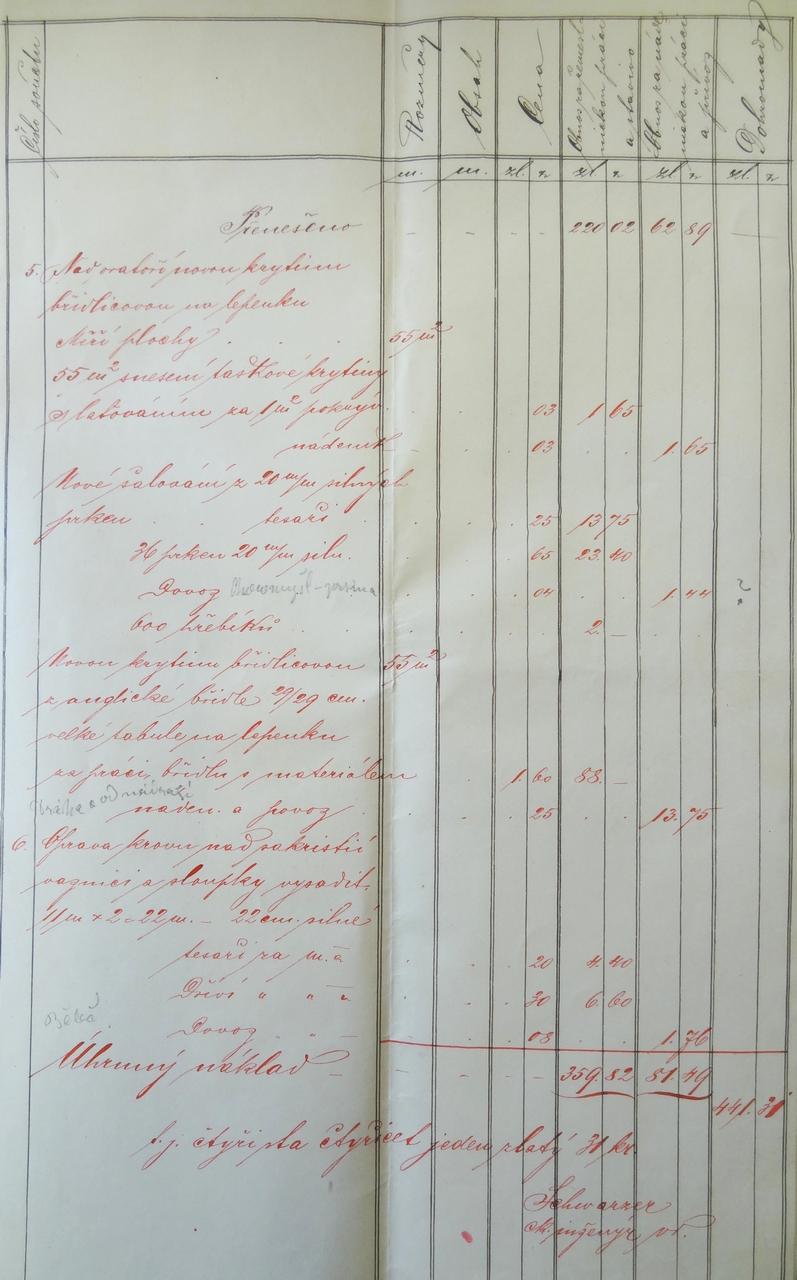 Číslo položky
Rozměry
Obsah
Cena
Obnos za řemesl
nickou práci
a stavivo
Obnos za náde
nickou práci
a přívoz
Dohromady
m. m. zl. kr zl kr zl. kr zl. kr
Přenešeno - - - - 220 02 62 89 —
5. Nad oratoří novou krytinu
břidlicovou na lepenku
Míří plochy . . . 55 m²
55 m² snesení taškové krytiny
s laťováním za 1 m² pokrýv. . . 03 1 65
nádeník . . 03 . . 1. 65
Nové šalování z 20 m/m silných
prken . . tesaři . . . 25 13 75
36 prken 20 m/m siln. . . 65 23. 40
Dovoz . . 04 . . 1. 44 ?
600 hřebíků . . . . 2. — . .
Novou krytinu břidlicovou 55 m²
z anglické břidle 29/29 cm.
velké tabule na lepenku
za práci, břidlu s materiálem . 1. 60 88. —
náden. a povoz . . . 25 . . 13. 75
6. Oprava krovu nad sakristií
vaznici a sloupky vysadit.
11 m × 2 = 22 m. — 22 cm. silné
tesaři za m. à . . 20 4. 40
Dříví " " " . . 30 6. 60
Dovoz " . . 08 . . 1. 76
Úhrnný náklad - - - - - 359. 82 81. 49
441. 31
t. j. čtyřista čtyřicet jeden zlatý 31 kr.
Schwarzer
ck. inženýr vr.